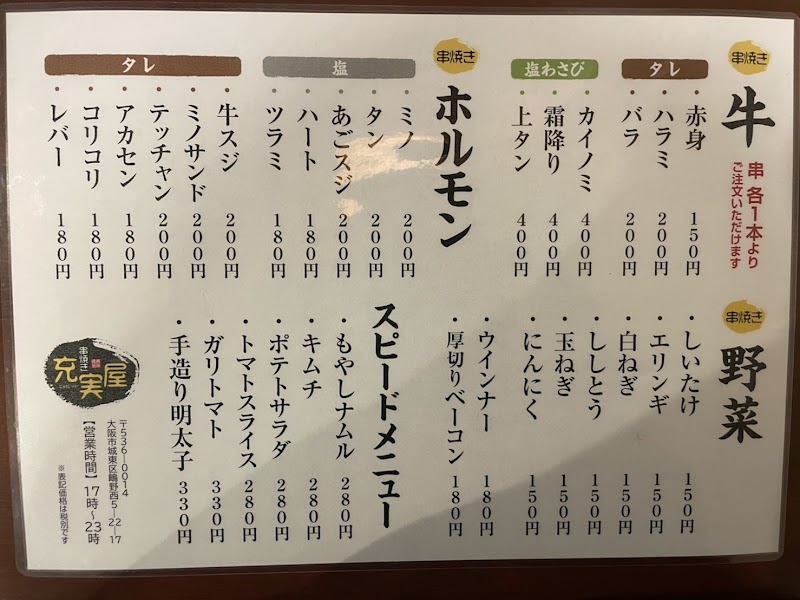 串焼き
牛
串 各1本より
ご注文いただけます
タレ
・赤身 150円
・ハラミ 200円
・バラ 200円
塩わさび
・カイノミ 400円
・霜降り 400円
・上タン 400円
串焼き
ホルモン
塩
・ミノ 200円
・タン 200円
・あごスジ 200円
・ハート 180円
・ツラミ 180円
タレ
・牛スジ 200円
・ミノサンド 200円
・テッチャン 200円
・アカセン 180円
・コリコリ 180円
・レバー 180円
串焼き
野菜
・しいたけ 150円
・エリンギ 150円
・白ねぎ 150円
・ししとう 150円
・玉ねぎ 150円
・にんにく 150円
・ウインナー 180円
・厚切りベーコン 180円
スピードメニュー
・もやしナムル 280円
・キムチ 280円
・ポテトサラダ 280円
・トマトスライス 280円
・ガリトマト 330円
・手造り明太子 330円
串焼き
充実屋
〒536-0014
大阪市城東区鴫野西5-22-17
【営業時間】17時~23時
※表記価格は税別です